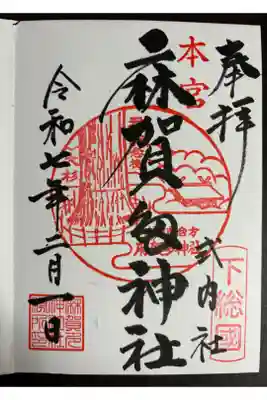 奉拝
本宮
麻賀多神社
式内社
下総國
大杉
令和七年二月一日